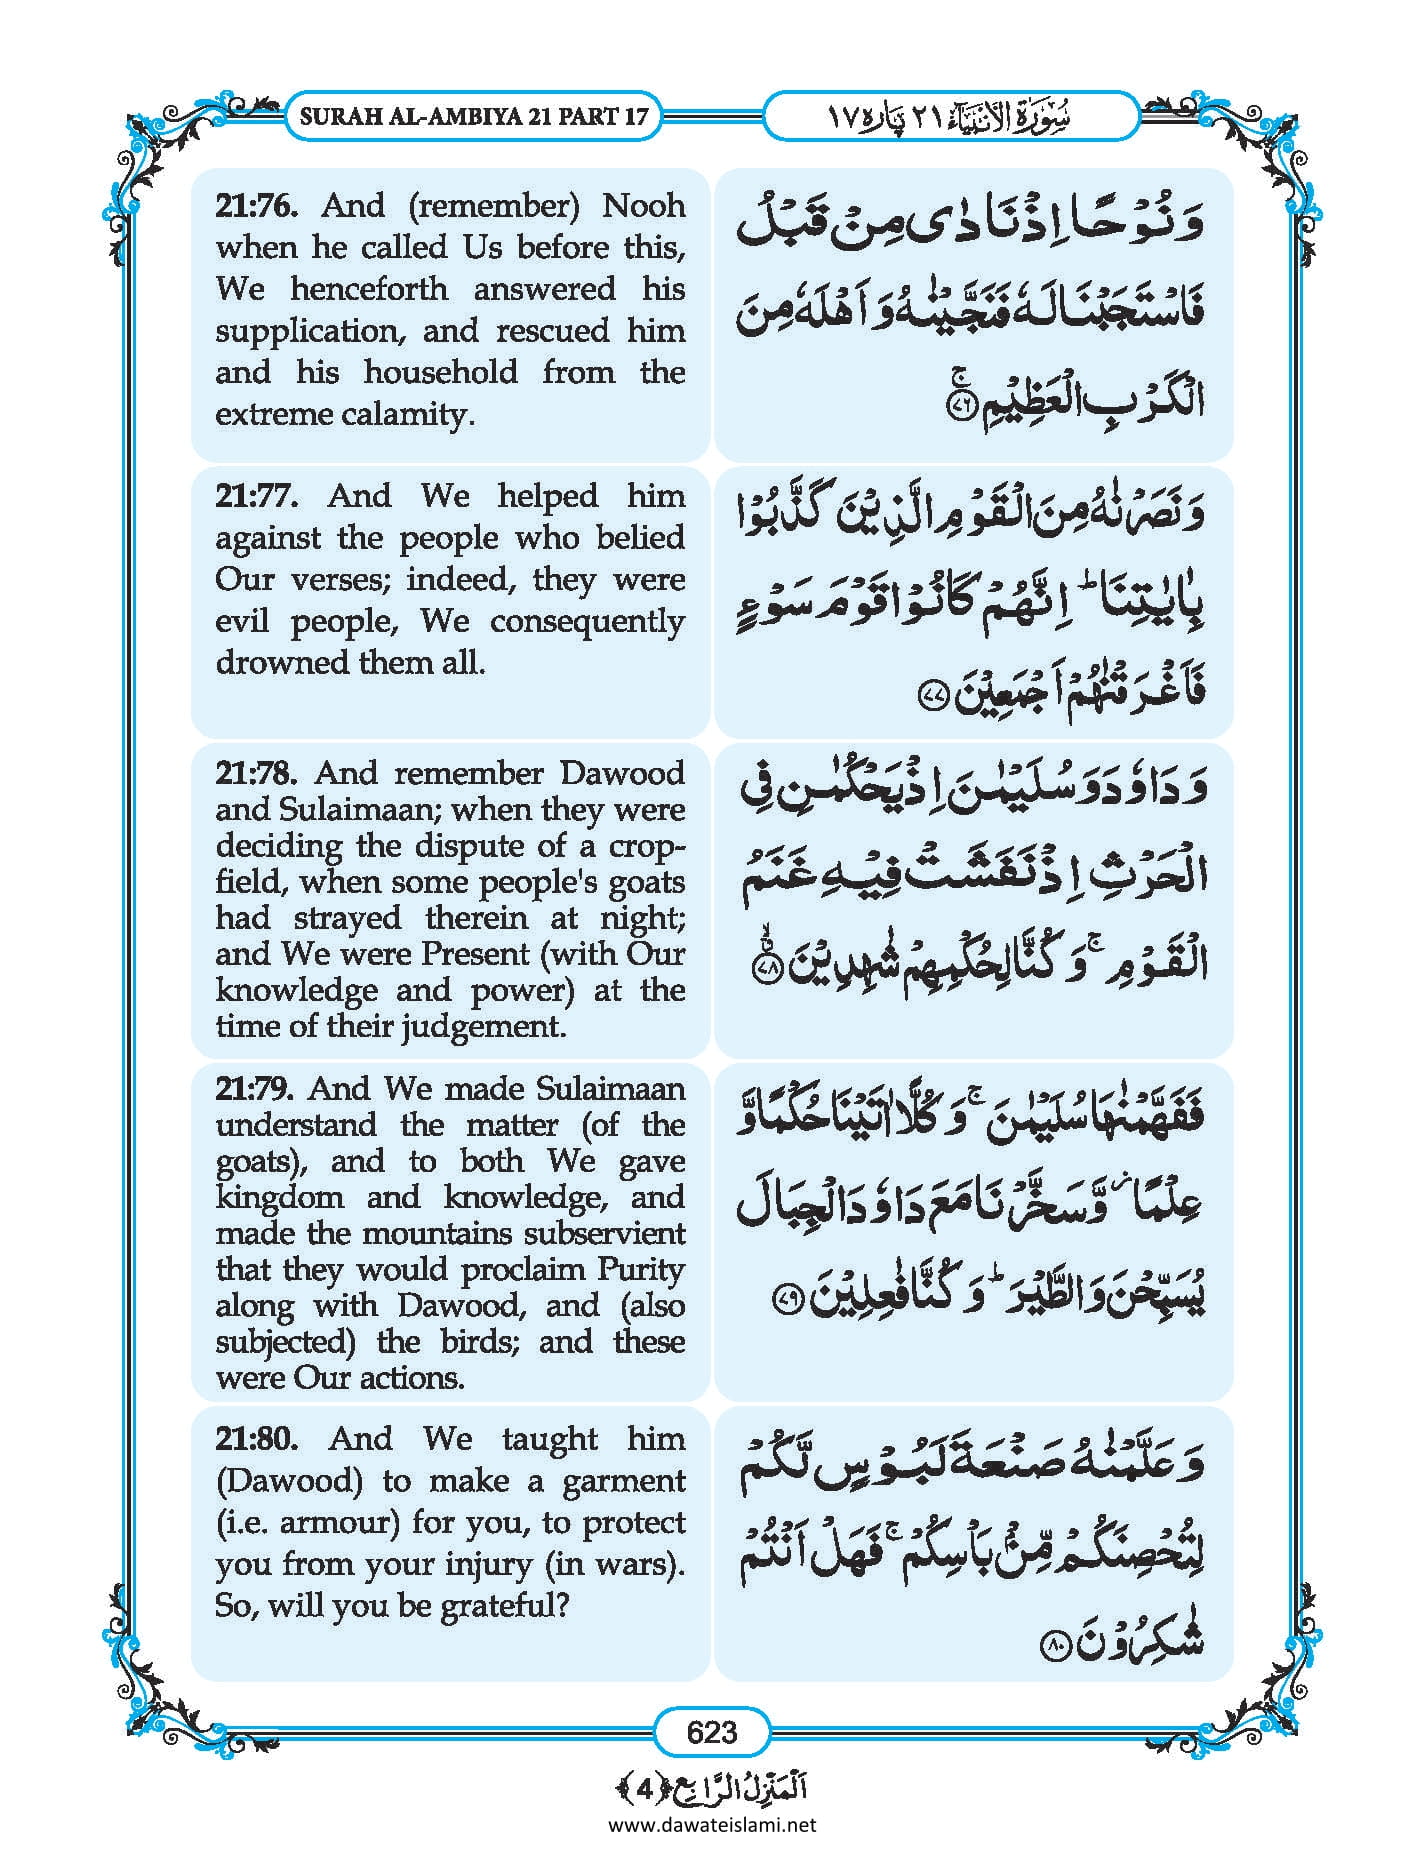 SURAH AL-AMBIYA 21 PART 17
سُوْرَةُ الْاَنْبِيَآءِ ٢١ پارہ ١٧
21:76. And (remember) Nooh
when he called Us before this,
We henceforth answered his
supplication, and rescued him
and his household from the
extreme calamity.
وَ نُوْحًا اِذْ نَادٰى مِنْ قَبْلُ
فَاسْتَجَبْنَا لَهٗ فَنَجَّیْنٰهُ وَ اَهْلَهٗ مِنَ
الْكَرْبِ الْعَظِیْمِۚ۝۷۶
21:77. And We helped him
against the people who belied
Our verses; indeed, they were
evil people, We consequently
drowned them all.
وَ نَصَرْنٰهُ مِنَ الْقَوْمِ الَّذِیْنَ كَذَّبُوْا
بِاٰیٰتِنَاؕ اِنَّهُمْ كَانُوْا قَوْمَ سَوْءٍ
فَاَغْرَقْنٰهُمْ اَجْمَعِیْنَ۝۷۷
21:78. And remember Dawood
and Sulaimaan; when they were
deciding the dispute of a crop-
field, when some people's goats
had strayed therein at night;
and We were Present (with Our
knowledge and power) at the
time of their judgement.
وَ دَاوٗدَ وَ سُلَیْمٰنَ اِذْ یَحْكُمٰنِ فِی
الْحَرْثِ اِذْ نَفَشَتْ فِیْهِ غَنَمُ
الْقَوْمِۚ وَ كُنَّا لِحُكْمِهِمْ شٰهِدِیْنَۗۙ۝۷۸
21:79. And We made Sulaimaan
understand the matter (of the
goats), and to both We gave
kingdom and knowledge, and
made the mountains subservient
that they would proclaim Purity
along with Dawood, and (also
subjected) the birds; and these
were Our actions.
فَفَهَّمْنٰهَا سُلَیْمٰنَۚ وَ كُلًّا اٰتَیْنَا حُكْمًا وَّ
عِلْمًا٘ وَّ سَخَّرْنَا مَعَ دَاوٗدَ الْجِبَالَ
یُسَبِّحْنَ وَ الطَّیْرَؕ وَ كُنَّا فٰعِلِیْنَ۝۷۹
21:80. And We taught him
(Dawood) to make a garment
(i.e. armour) for you, to protect
you from your injury (in wars).
So, will you be grateful?
وَ عَلَّمْنٰهُ صَنْعَةَ لَبُوْسٍ لَّكُمْ
لِتُحْصِنَكُمْ مِّنْۢ بَاْسِكُمْۚ فَهَلْ اَنْتُمْ
شٰكِرُوْنَ۝۸۰
623
اَلْمَنْزِلُ الرَّابِع ﴿4﴾
www.dawateislami.net